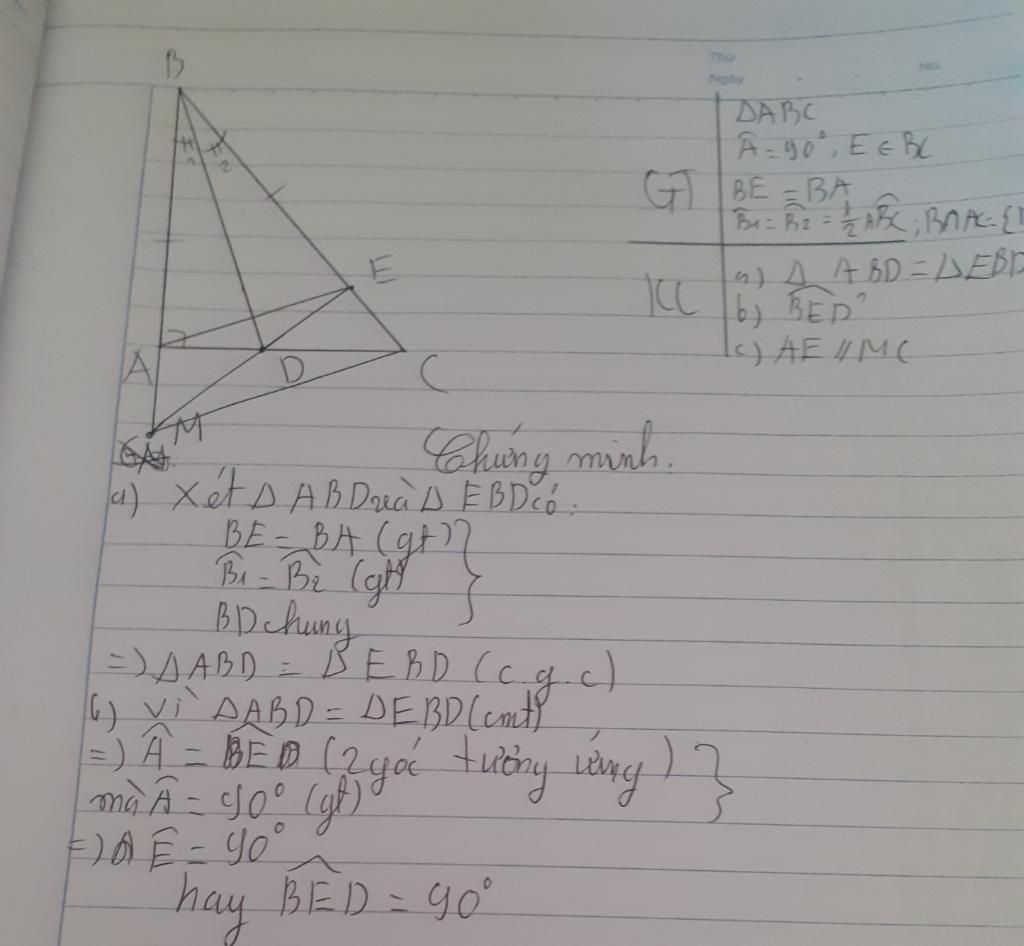 Thứ
Ngày
No.
B
1
2
E
A
D
C
M
GT
ΔABC
Â = 90°, E ∈ BC
BE = BA
B̂1 = B̂2 = 1/2 ABC; B∩AC = {
KL
a) Δ ABD = ΔEBD
b) BED?
c) AE // MC
Chứng minh.
a) Xét Δ ABD và Δ EBD có:
BE = BA (gt)
B̂1 = B̂2 (gt)
BD chung
=) ΔABD = Δ EBD (c.g.c)
b) Vì ΔABD = ΔEBD (cmt)
=) Â = BED (2 góc tương ứng)
mà Â = 90° (gt)
=) Ê = 90°
hay BED = 90°